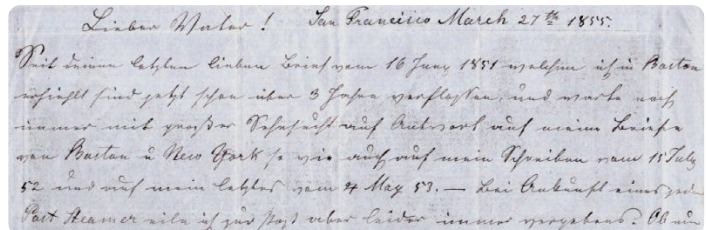 Lieber Vater! San Francisco March 27th 1855.
Seit deinen letzten lieben Brief vom 16 Juny 1851 welchen ich in Boston
erhielt sind jetzt schon über 3 Jahre verflossen, und warte noch
immer mit großer Sehnsucht auf Antwort auf meine Briefe
von Boston u New York so wie auch auf mein Schreiben vom 15 July
52 und auf mein letztes vom 4 May 53. — Bei Ankunft eines jed
Post Steamer eile ich zur Post aber leider immer vergebens. Ob